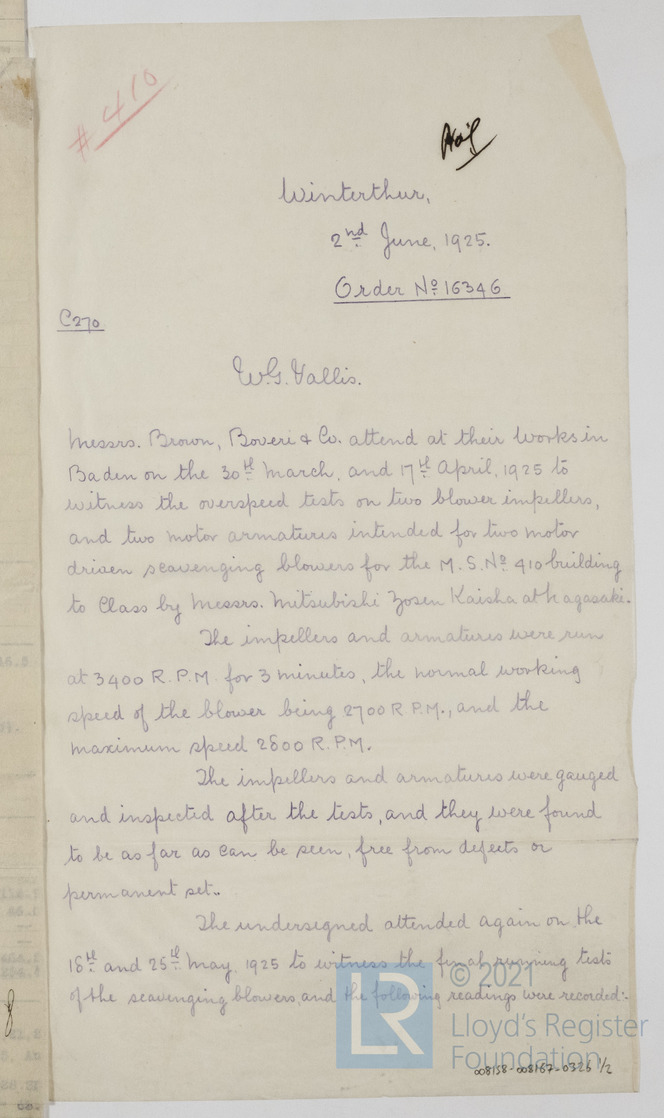 # 410
Winterthur,
2nd June, 1925.
Order No 16346
C270
W.G. Vallis.
Messrs. Brown, Boveri & Co. attend at their Works in
Baden on the 30th March, and 17th April, 1925 to
witness the overspeed tests on two blower impellers,
and two motor armatures intended for two motor
driven scavenging blowers for the M.S. No 410 building
to Class by Messrs. Mitsubishi Zosen Kaisha at Nagasaki.
The impellers and armatures were run
at 3400 R.P.M. for 3 minutes, the normal working
speed of the blower being 2700 R.P.M., and the
maximum speed 2800 R.P.M.
The impellers and armatures were gauged
and inspected after the tests, and they were found
to be as far as can be seen, free from defects or
permanent set.
The undersigned attended again on the
18th and 25th May, 1925 to witness the final running tests
of the scavenging blowers, and the following readings were recorded:-
© 2021
LR
Lloyd's Register
Foundation
008158-008167-0326 1/2